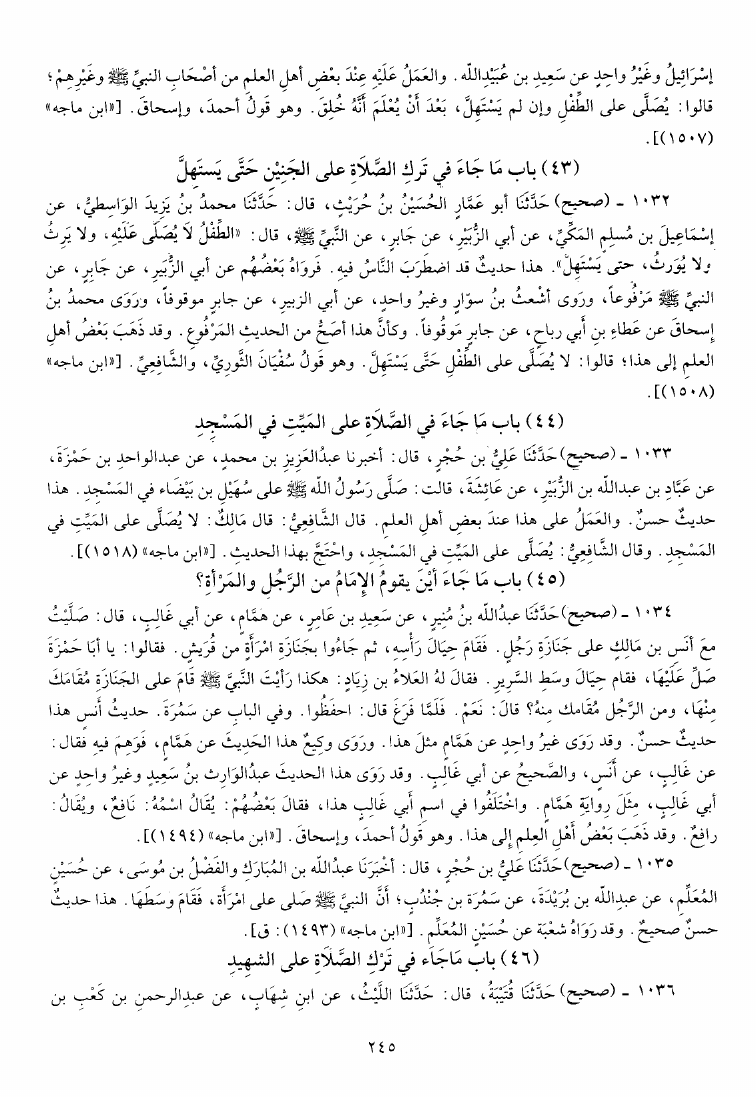 إسْرَائِيلُ وغَيْرُ واحِدٍ عن سَعِيدِ بن عُبَيْدِاللّه. والعَمَلُ عَلَيْهِ عِنْدَ بعْضِ أهلِ العلم من أصْحَابِ النبيِّ ﷺ وغَيْرِهِمْ؛
قالوا: يُصَلَّى على الطِّفْلِ وإن لم يَسْتَهِلَّ، بَعْدَ أَنْ يُعْلَمَ أنَّهُ خُلِقَ. وهو قَولُ أحمدَ، وإسحاقَ. [«ابن ماجه»
(١٥٠٧)].
(٤٣) باب مَا جَاءَ في تَركِ الصَّلَاةِ على الجَنِيْنِ حَتَّى يَستَهِلَّ
١٠٣٢ ـ (صحيح) حَدَّثَنَا أبو عَمَّارٍ الحُسَيْنُ بنُ حُرَيْثٍ، قال: حَدَّثَنَا محمدُ بنُ يَزِيدَ الوَاسِطيُّ، عن
إسْمَاعِيلَ بن مُسلِمٍ المَكِّيِّ، عن أبي الزُّبَيْرِ، عن جَابرٍ، عن النَّبيِّ ﷺ، قال: «الطِّفْلُ لَا يُصَلَّى عَلَيْهِ، ولا يَرِثُ
ولا يُورَثُ، حتى يَسْتَهِلَّ». هذا حديثٌ قد اضطَرَبَ النَّاسُ فيهِ. فروَاهُ بَعْضُهُم عن أبي الزُّبَيرِ، عن جَابِرٍ، عن
النبيِّ ﷺ مَرْفُوعاً، ورَوَى أشْعثُ بنُ سوَّارٍ وغيرُ واحدٍ، عن أبي الزبيرِ، عن جابرٍ موقوفاً، ورَوَى محمدُ بنُ
إسحاقَ عن عَطاءِ بنِ أبي رباحٍ، عن جابرٍ مَوقُوفاً. وكأنَّ هذا أصَحُّ من الحديثِ المَرْفُوعِ. وقد ذَهَبَ بَعْضُ أهلِ
العلمِ إلى هذا؛ قالوا: لا يُصَلَّى على الطِّفْلِ حَتَّى يَسْتَهِلَّ. وهو قَولُ سُفْيَانَ الثَّوريِّ، والشَّافِعِيِّ. [«ابن ماجه»
(١٥٠٨)].
(٤٤) باب مَا جَاءَ في الصَّلاةِ على المَيِّتِ في المَسْجِدِ
١٠٣٣ ـ (صحيح) حَدَّثَنَا عَلِيُّ بن حُجْرٍ، قال: أخبرنا عبدُالعَزِيزِ بن محمدٍ، عن عبدالواحدِ بن حَمْزَةَ،
عن عَبَّادِ بن عبداللّه بن الزُّبَيْرِ، عن عَائِشَةَ، قالت: صَلَّى رَسُولُ اللّه ﷺ على سُهَيْلِ بن بَيْضَاء في المَسْجِدِ. هذا
حديثٌ حسنٌ. والعَمَلُ على هذا عندَ بعضِ أهلِ العلمِ. قال الشَّافعيُّ: قال مَالِكٌ: لا يُصَلَّى على المَيِّتِ في
المَسْجِدِ. وقال الشَّافعِيُّ: يُصَلَّى على المَيِّتِ في المَسْجِدِ، واحْتَجَّ بهذا الحديثِ. [«ابن ماجه» (١٥١٨)].
(٤٥) باب مَا جَاءَ أيْنَ يقومُ الإمَامُ من الرَّجُلِ والمَرْأةِ؟
١٠٣٤ ـ (صحيح) حَدَّثَنَا عبدُاللّه بنُ مُنِيرٍ، عن سَعِيدِ بن عَامِرٍ، عن همَّامٍ، عن أبي غَالِبٍ، قال: صَلَّيْتُ
معَ أنَسِ بن مَالِكٍ على جَنَازَةِ رَجُلٍ. فَقَامَ حِيَالَ رَأسِهِ، ثم جَاءُوا بجَنَازَةِ امْرَأةٍ من قُرَيشٍ. فقالوا: يا أبَا حَمْزَةَ
صَلِّ عَلَيْهَا، فقام حِيَالَ وسَطِ السَّرِيرِ. فقالَ لهُ العَلَاءُ بن زِيَادٍ: هكذا رَأيْتَ النَّبيَّ ﷺ قَامَ على الجَنَازَةِ مُقَامَكَ
مِنْهَا، ومن الرَّجُلِ مُقَامك مِنهُ؟ قالَ: نَعَمْ. فَلَمَّا فرَغَ قال: احفَظُوا. وفي البابِ عن سَمُرَةَ. حديثُ أنسٍ هذا
حديثٌ حسنٌ. وقد رَوَى غيرُ واحدٍ عن همَّامٍ مثلَ هذا. ورَوَى وكِيعٌ هذا الحَدِيثَ عن همَّامٍ، فَوَهِمَ فيهِ فقال:
عن غَالِبٍ، عن أنَسٍ، والصَّحيحُ عن أبي غَالبٍ. وقد رَوَى هذا الحديثَ عبدُالوَارِثِ بنُ سَعِيدٍ وغيرُ واحِدٍ عن
أبي غَالبٍ، مِثلَ رِوايَةِ همَّامٍ. واخْتَلَفُوا في اسمِ أبي غَالبٍ هذا، فقالَ بَعْضُهُمْ: يُقَالُ اسْمُهُ: نَافِعٌ، ويُقَالُ:
رافِعٌ. وقد ذَهَبَ بَعْضُ أهْلِ العِلمِ إلى هذا. وهو قَولُ أحمدَ، وإسحاقَ. [«ابن ماجه» (١٤٩٤)].
١٠٣٥ ـ (صحيح) حَدَّثَنَا عَليُّ بن حُجْرٍ، قال: أخْبَرَنَا عبدُاللّه بن المُبَارَكِ والفَضْلُ بن مُوسَى، عن حُسَيْنٍ
المُعَلِّمِ، عن عبدِاللّه بن بُرَيْدَةَ، عن سَمُرَة بن جُنْدُبٍ؛ أنَّ النبيَّ ﷺ صَلى على امْرَأة، فَقَامَ وسَطَهَا. هذا حديثٌ
حسنٌ صحيحٌ. وقد رَوَاهُ شعْبَة عن حُسَيْنٍ المُعَلِّم. [«ابن ماجه» (١٤٩٣): ق].
(٤٦) باب مَاجَاَء في تَرْكِ الصَّلَاةِ على الشهِيدِ
١٠٣٦ ـ (صحيح) حَدَّثَنَا قُتَيْبَةُ، قال: حَدَّثَنَا اللَّيْثُ، عن ابنِ شِهَابٍ، عن عبدِالرحمنِ بن كَعْبِ بن
٢٤٥